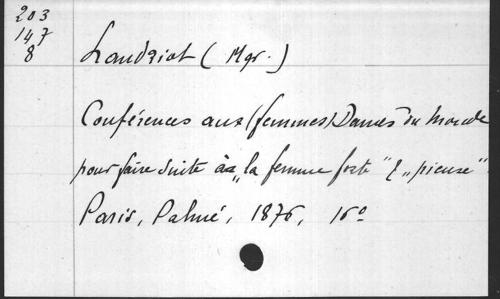 203
147
8
Landriot (Mgr.)
Conférences aux (femmes) Dames du monde
pour faire suite à "la femme forte" & "pieuse"
Paris, Palmé, 1876, 16º